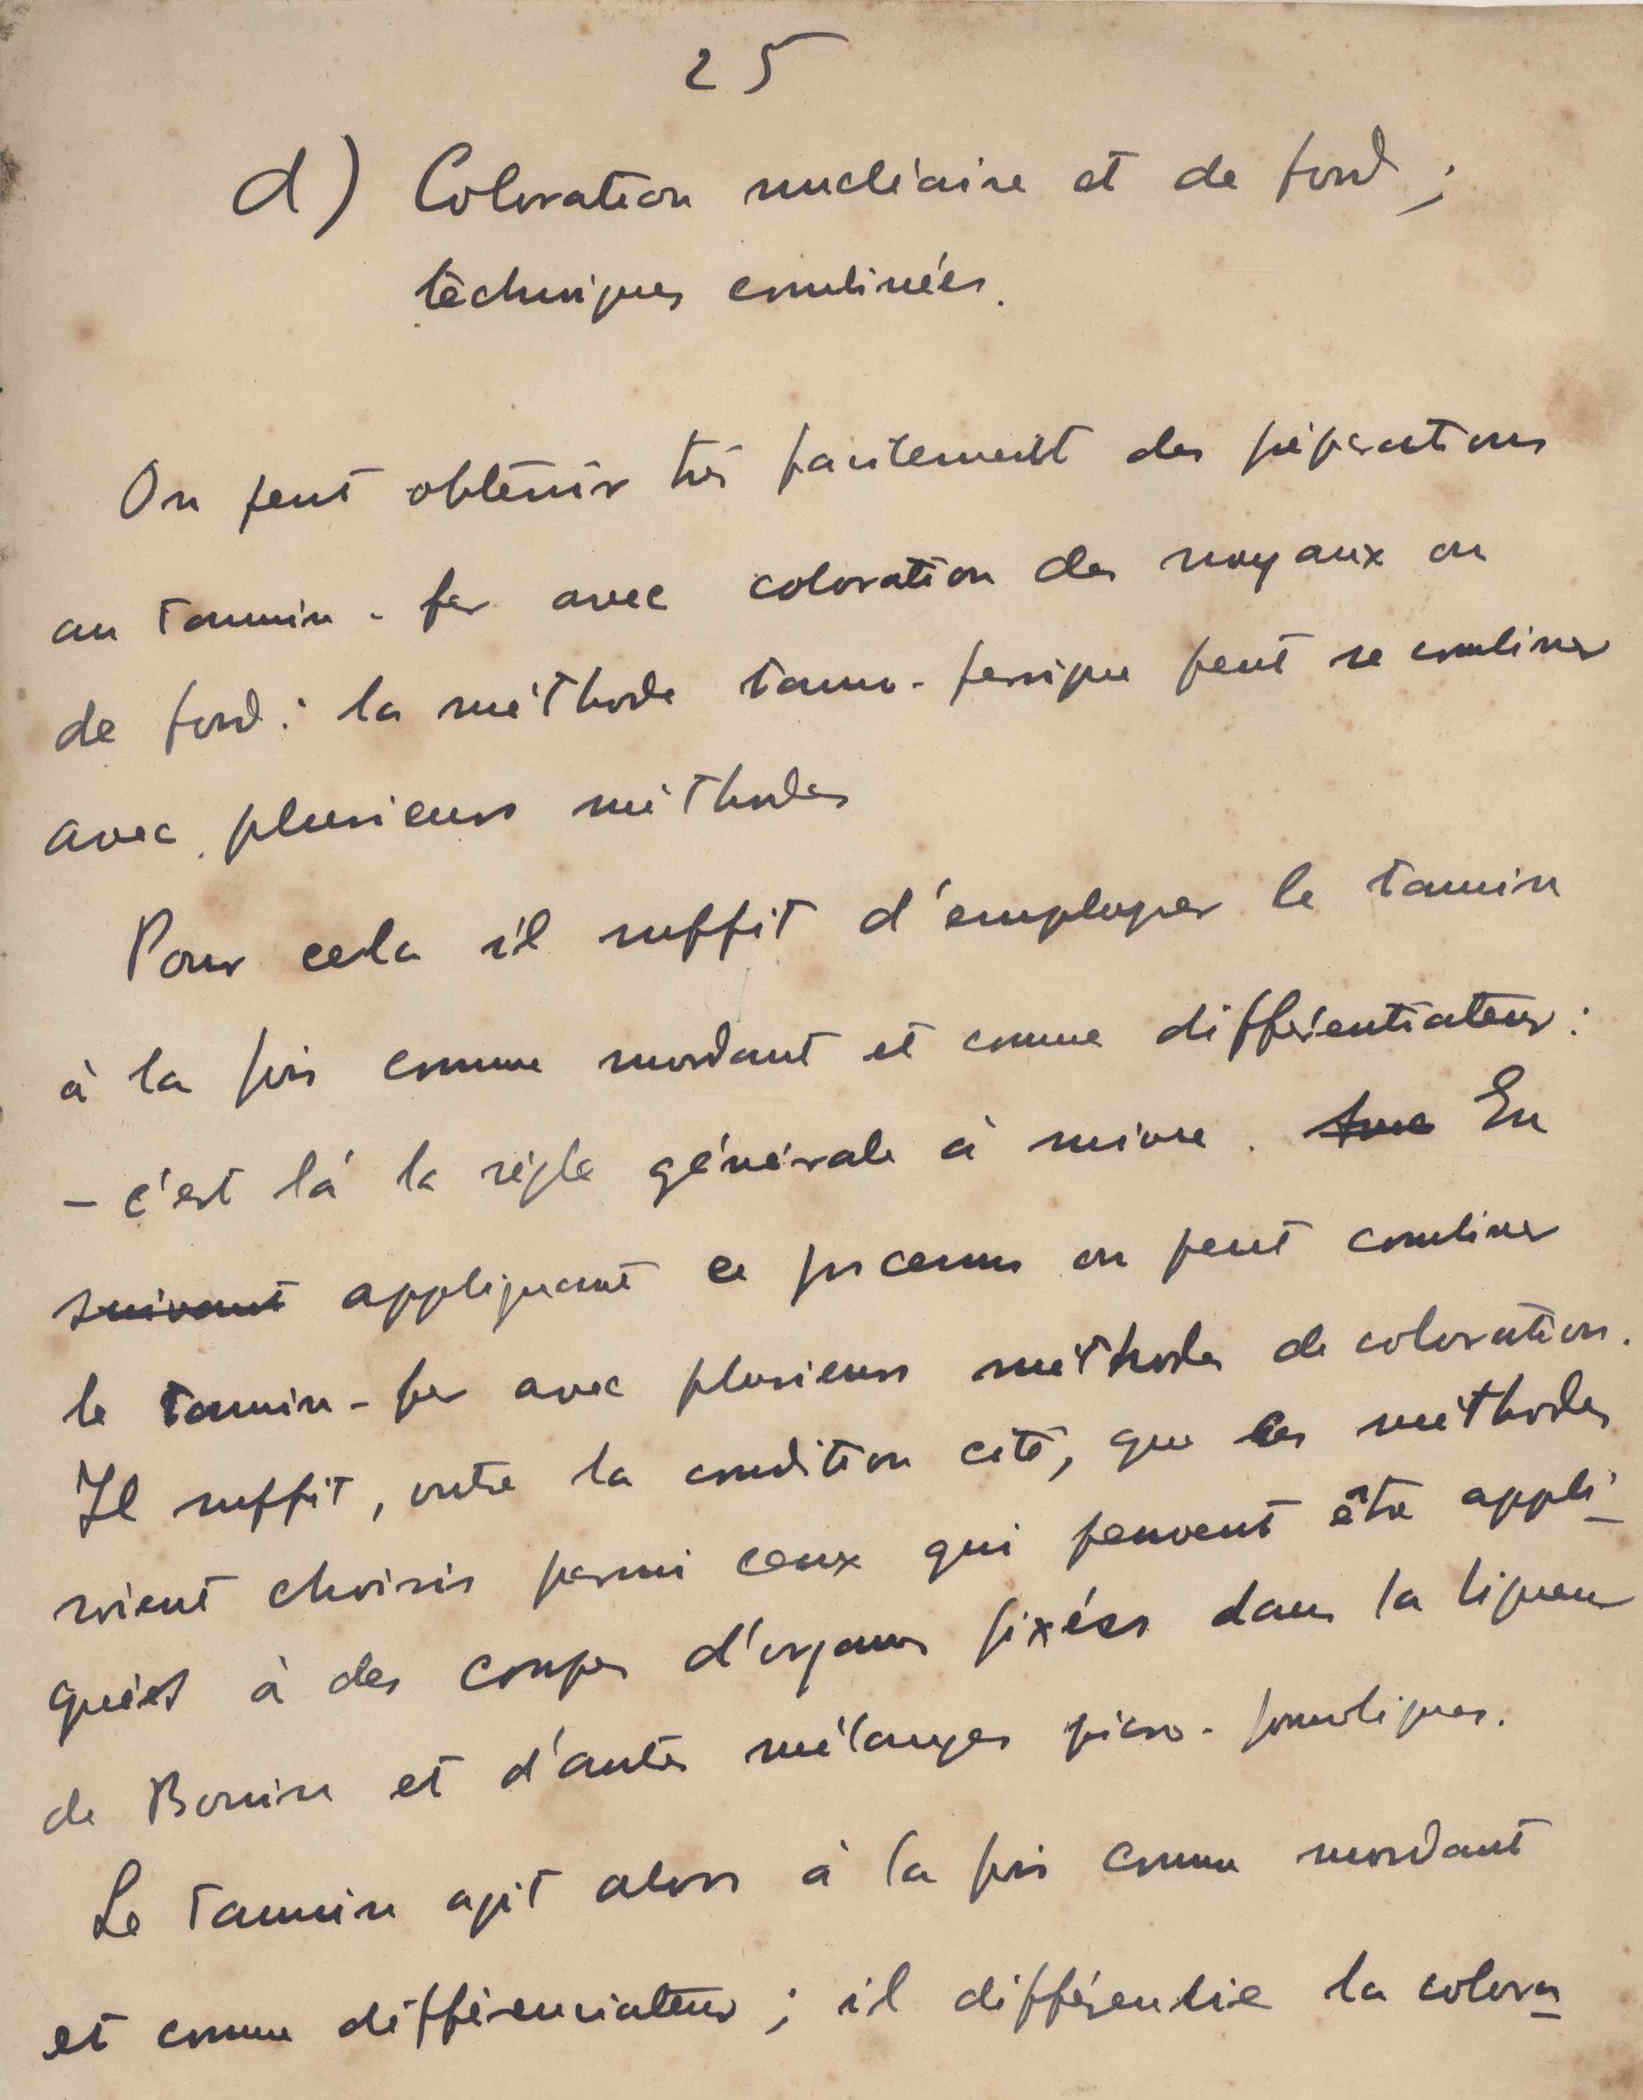 25
d) Coloration nucléaire et de fond ;
techniques combinées.
On peut obtenir très facilement des préparations
au tannin-fer avec coloration des noyaux ou
de fond : la méthode tanno-ferrique peut se combiner
avec plusieurs méthodes
Pour cela il suffit d'employer le tannin
à la fois comme mordant et comme différentiateur :
- c'est là la règle générale à suivre. Avec En
suivant appliquant ce processus on peut combiner
le tannin-fer avec plusieurs méthodes de coloration.
Il suffit, outre la condition cité, que les méthodes
soient choisis parmi ceux qui peuvent être appli-
qués à des coupes d'organes fixés dans la liqueur
de Bouin et d'autres mélanges picro-formoliques.
Le tannin agit alors à la fois comme mordant
et comme différenciateur ; il différentie la colora-